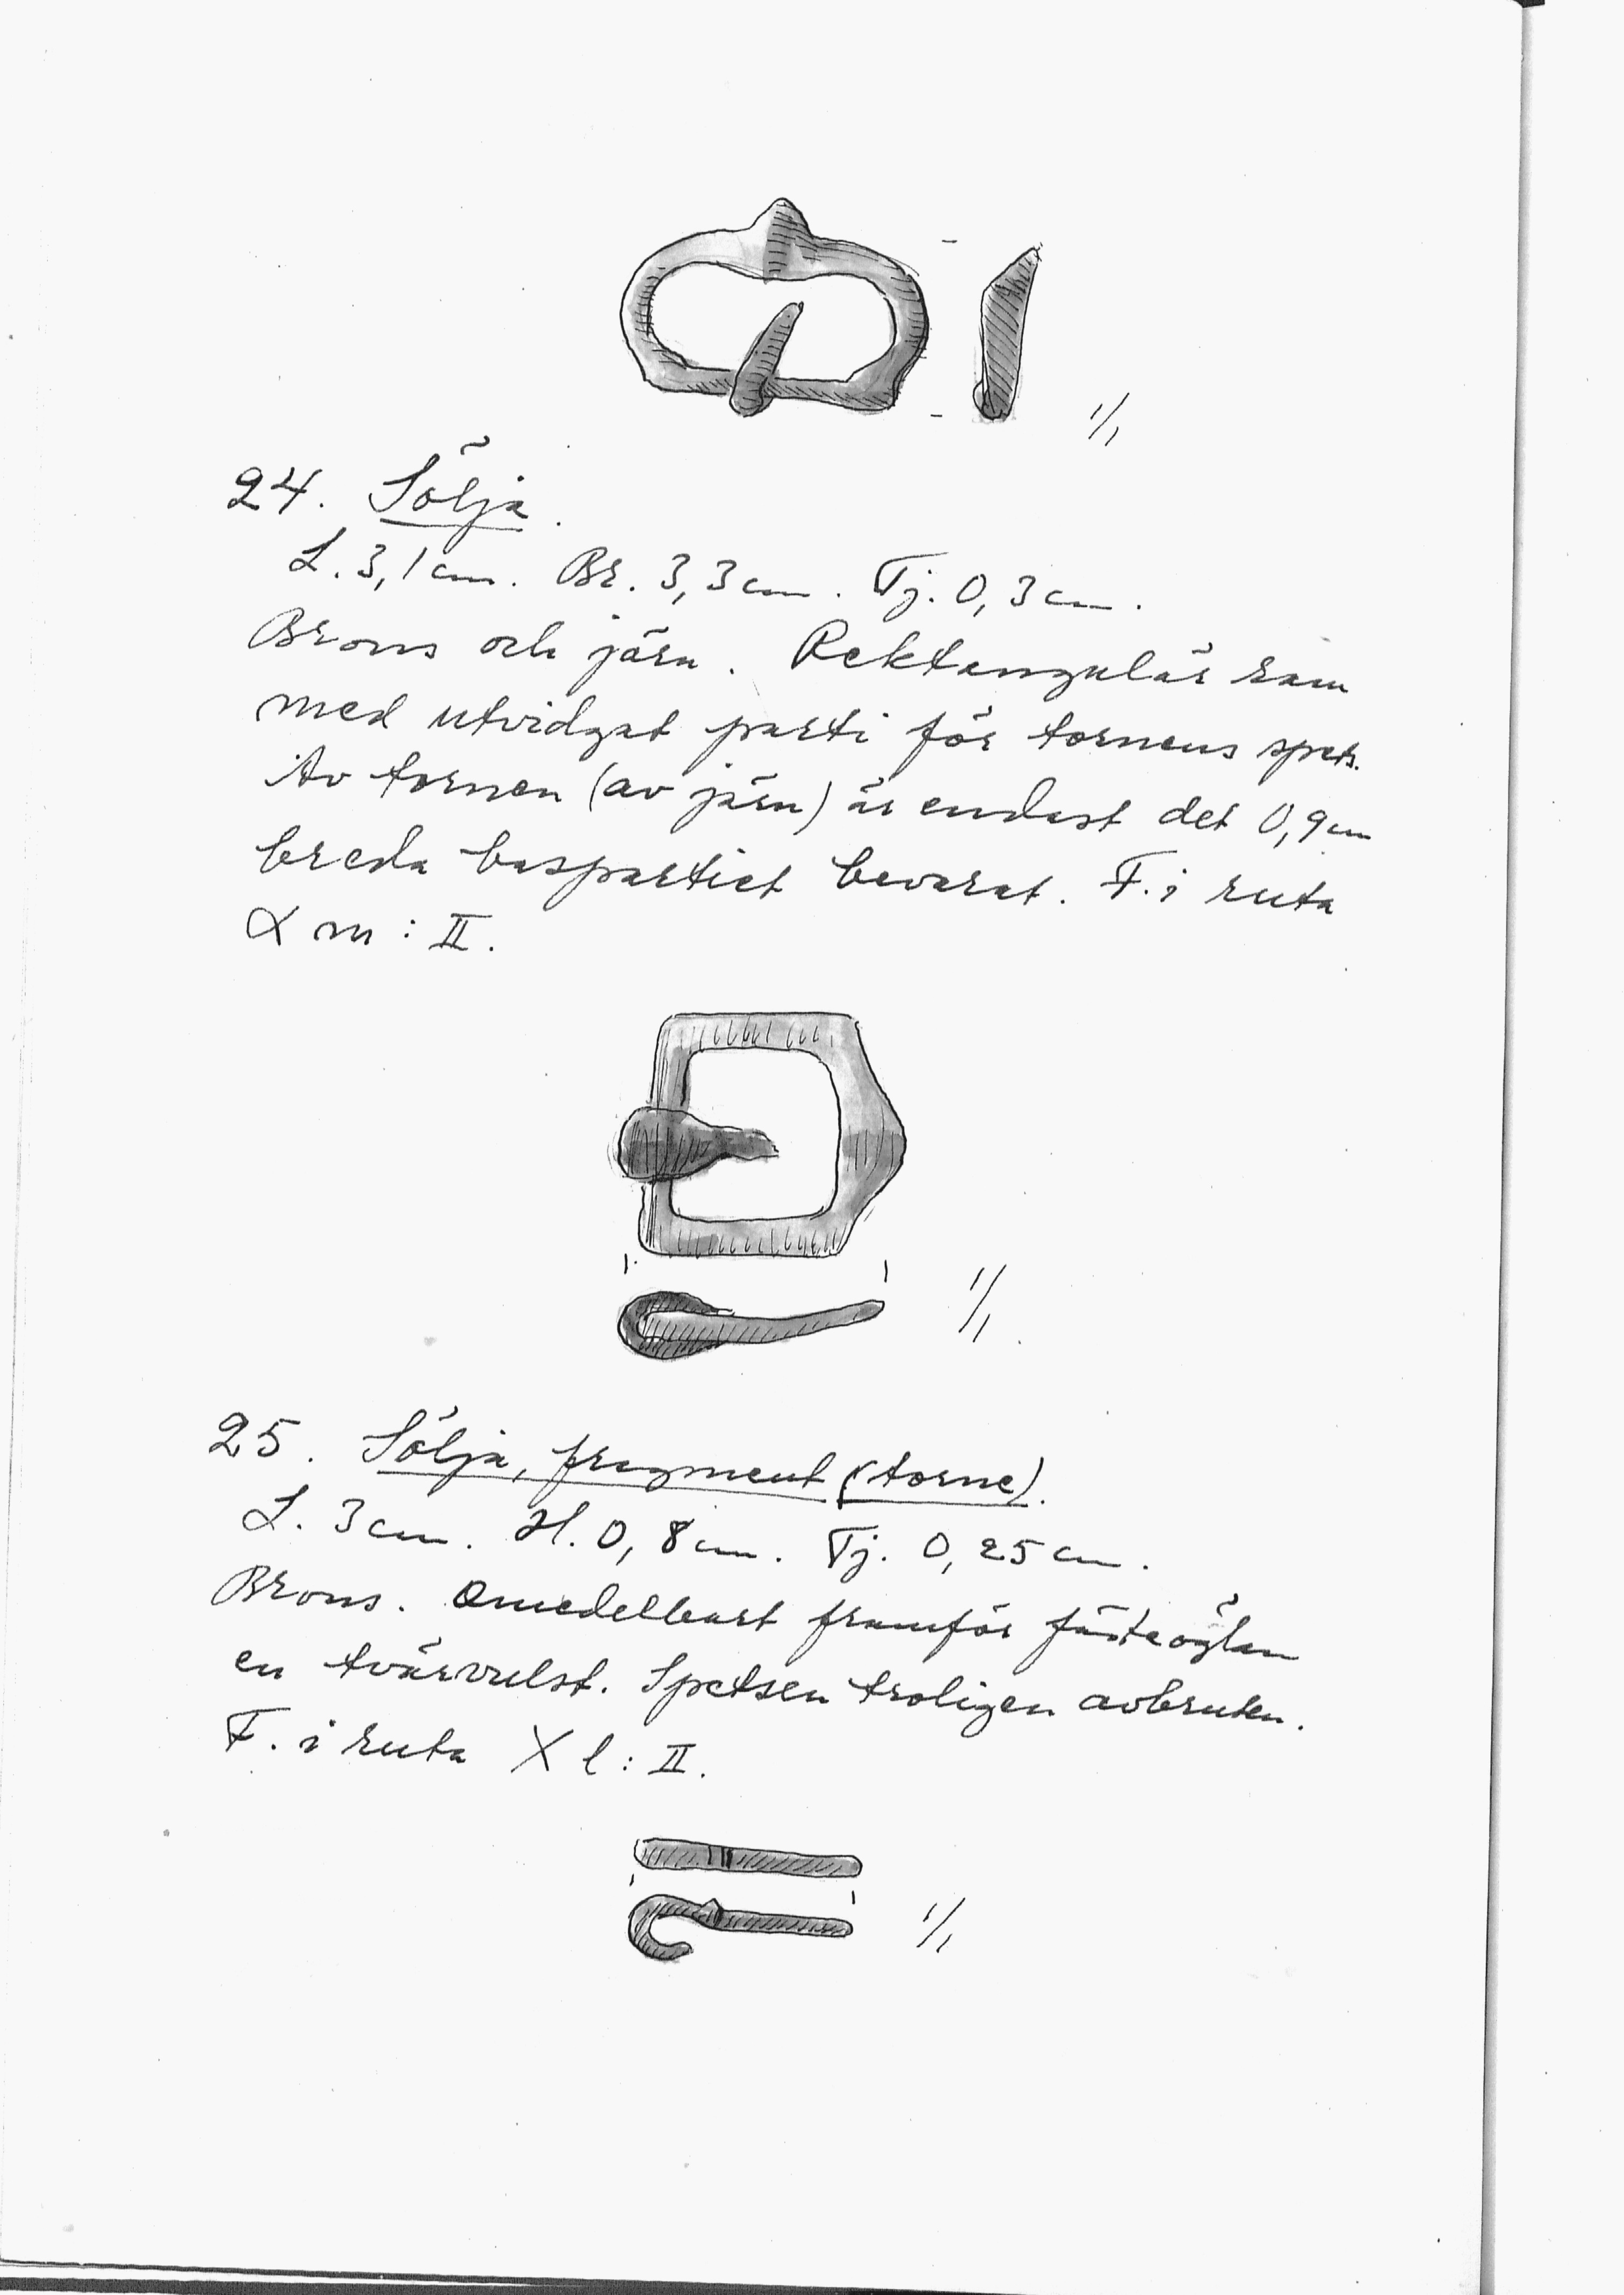 1/1
24. Sölja.
L. 3,1 cm. Br. 3,3 cm. Tj. 0,3 cm.
Brons och järn. Rektangulär ram
med utvidgat parti för tornens spets.
Av tornen (av järn) är endast det 0,9 cm
breda baspartiet bevarat. F. i ruta
X m : II.
1/1
25. Sölja, fragment (torne).
L. 3 cm. H. 0,8 cm. Tj. 0,25 cm.
Brons. Omedelbart framför fästeöglan
en tvärvulst. Spetsen troligen avbruten.
F. i ruta X l : II.
1/1